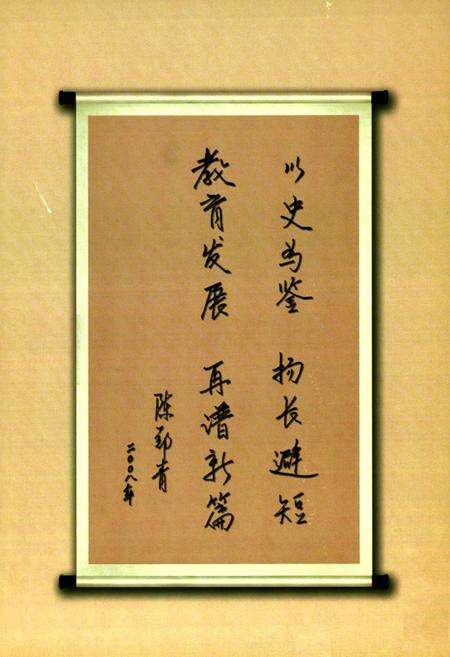 以史为鉴 扬长避短
教育发展 再谱新篇
陈勤肯
二〇〇八年